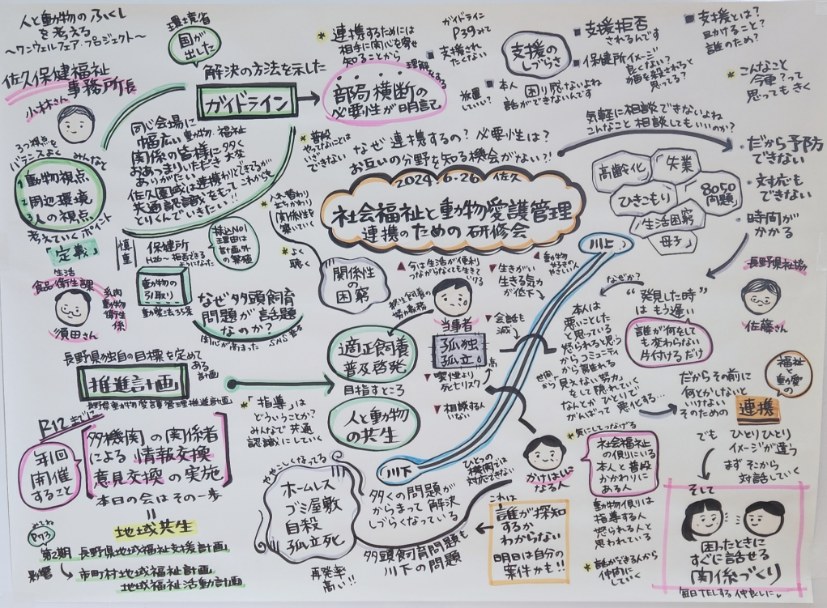 人と動物のふくしを考える
〜ワンウェルフェア・プロジェクト〜
佐久保健福祉
事務所長
小林さん
3つの視点を
バランスよく
みんなで
1 動物視点
2 周辺環境
3 人の視点
考えていくポイント
環境省
国が
出した
解決の方法を示した
ガイドライン
連携するためには
相手に関心を寄せ
知ることから
理解をする
部局横断の
必要性が明記
同じ会場に
幅広い動物福祉
関係の皆様に多く
おあつまりいただき大変
ありがたい
佐久圏域は連携ができてるが
共通認識をもってこれからも
とりくんでいきたい!!
普段
やってないことは
いざできない
ガイドライン
P39みて
支援され
たくない
放置
していい?
本人
困り感ないよね
話ができないんです
支援の
しづらさ
支援拒否
されるんです
保健所イメージ
良くない?
思ってる?
支援とは?
助けること?
誰のため?
こんなこと
今更?って
思ってもきく
なぜ連携するの?必要性は?
お互いの分野を知る機会がない?!
2024.6.26 佐久
社会福祉と動物愛護管理
連携のための研修会
気軽に相談できないよね
こんなこと相談してもいいのか?
高齢化
失業
ひきこもり
8050
問題
生活困窮
母子
だから予防
できない
対応も
できない
時間が
かかる
定義
保健所
動物の
引取り
動愛法35条
食品・生活
衛生課
乳肉
動物
衛生係
須田さん
なぜ多頭飼育
問題が話題
なのか?
関心が高まった
SNS
人が替わり
関係性を
築いていく
よく
聴く
関係性の
困窮
今は生活が便利
つながらなくても生きて
いける
生きがい
生きる気力
が低下
動物
やさしい人
当事者
孤独
孤立
金銭も
減
喫煙より
死亡リスク
高
相談する人
いない
適正飼養
普及啓発
目指すところ
人と動物
の共生
川上
川下
長野県独自の目標を定めて
ある
計画
推進計画
長野県動物愛護管理推進計画
R12までに
年1回
開催
すること
多機関の関係者
による情報交換
意見交換の実施
本日の会はその一歩
地域共生
第2期
長野県地域福祉支援計画
影響
市町村地域福祉計画
地域福祉活動計画
「指導」は
どういうことか?
みんなで共通
認識にしていく
ややこしくなってる
ホームレス
ゴミ屋敷
自殺
孤立死
再発率
高い!!
多くの問題が
からまって解決
しづらくなっている
多頭飼育問題も
川下の問題
ひとつの
機関では
対応できない
これは
誰が探知
するか
わからない
明日は自分の
案件かも!!
なぜか?
本人は
悪いことした
と思っている
怒られると思う
からコミュニティ
から離れる
見えない努力
をして隠れていく
なんとかひとりで
がんばって悪化する…
"発見した時"
はもう遅い
誰が何をして
も変わらない
片付けるだけ
長野県社協
佐藤さん
だからその前に
何とかしないと
いけない
そのための
連携
福祉
と
動愛の
でも
ひとりひとり
イメージが違う
まずそこから
対話していく
かけはしに
なる人
気にしてつなげる
社会福祉
の側にいる
本人と普段
かかわりに
ある人
動物側は
指導する人
怒られる人と
思われている
誰ができる人から
仲間にしていく
そして
困ったときに
すぐに話せる
関係づくり
毎日TELする仲良しに